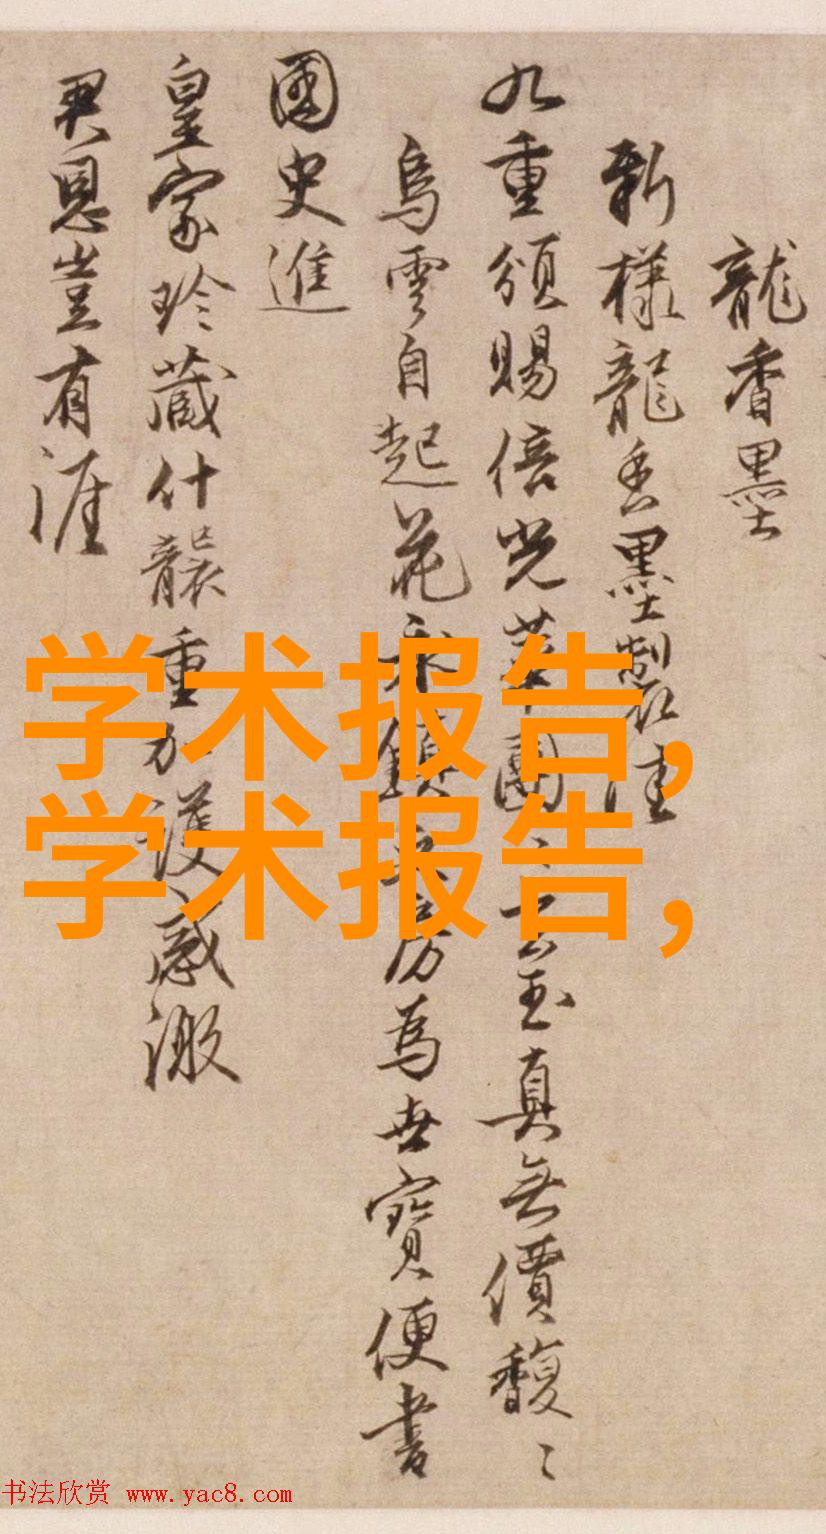 龍香墨
新樣龍香墨製佳
九重頒賜倍光華團〻玄玉真無價馥〻
烏雲自起花永鎮文房為世寶便書
國史進
皇家珍藏什襲重加護感激
君恩豈有涯
学术报告,
学术报告,
书法欣赏 www.yac8.com